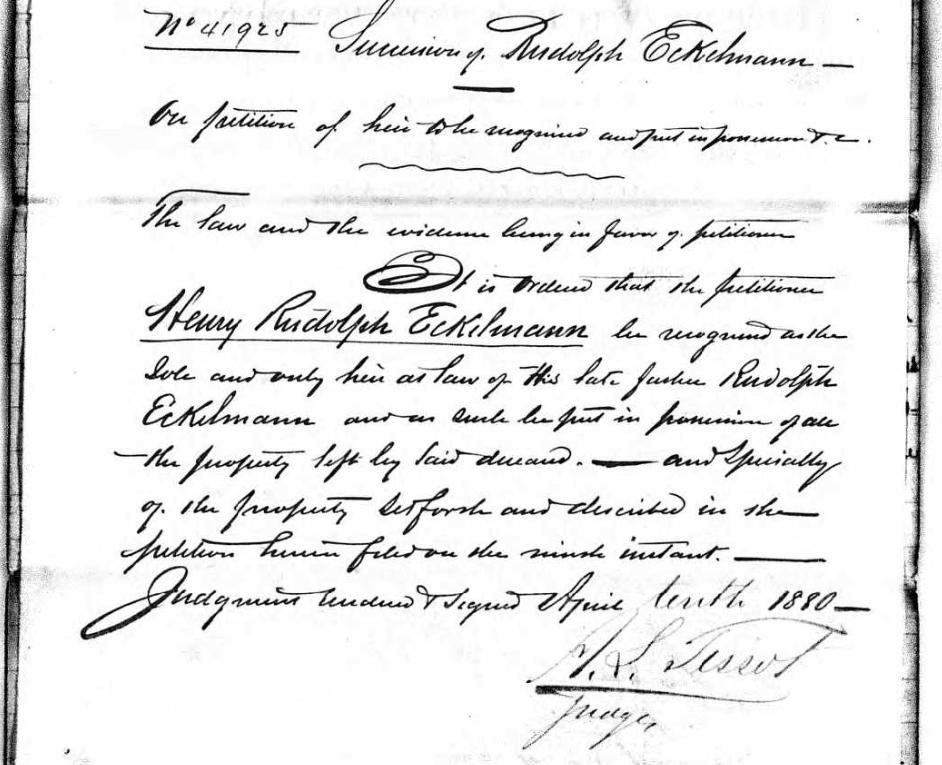 No 41925 Succession of Rudolph Eckelmann —
On petition of heir to be recognised and put in possession &c.
The law and the evidence being in favor of petitioner
It is ordered that the petitioner
Henry Rudolph Eckelmann be recognised as the
Sole and only heir at law of his late father Rudolph
Eckelmann and as such be put in possession of all
the property left by said deceased. — and Specially
of the property set forth and described in the
petition herein filed on the ninth instant. —
Judgment rendered & signed April tenth 1880 —
Tissot
Judge